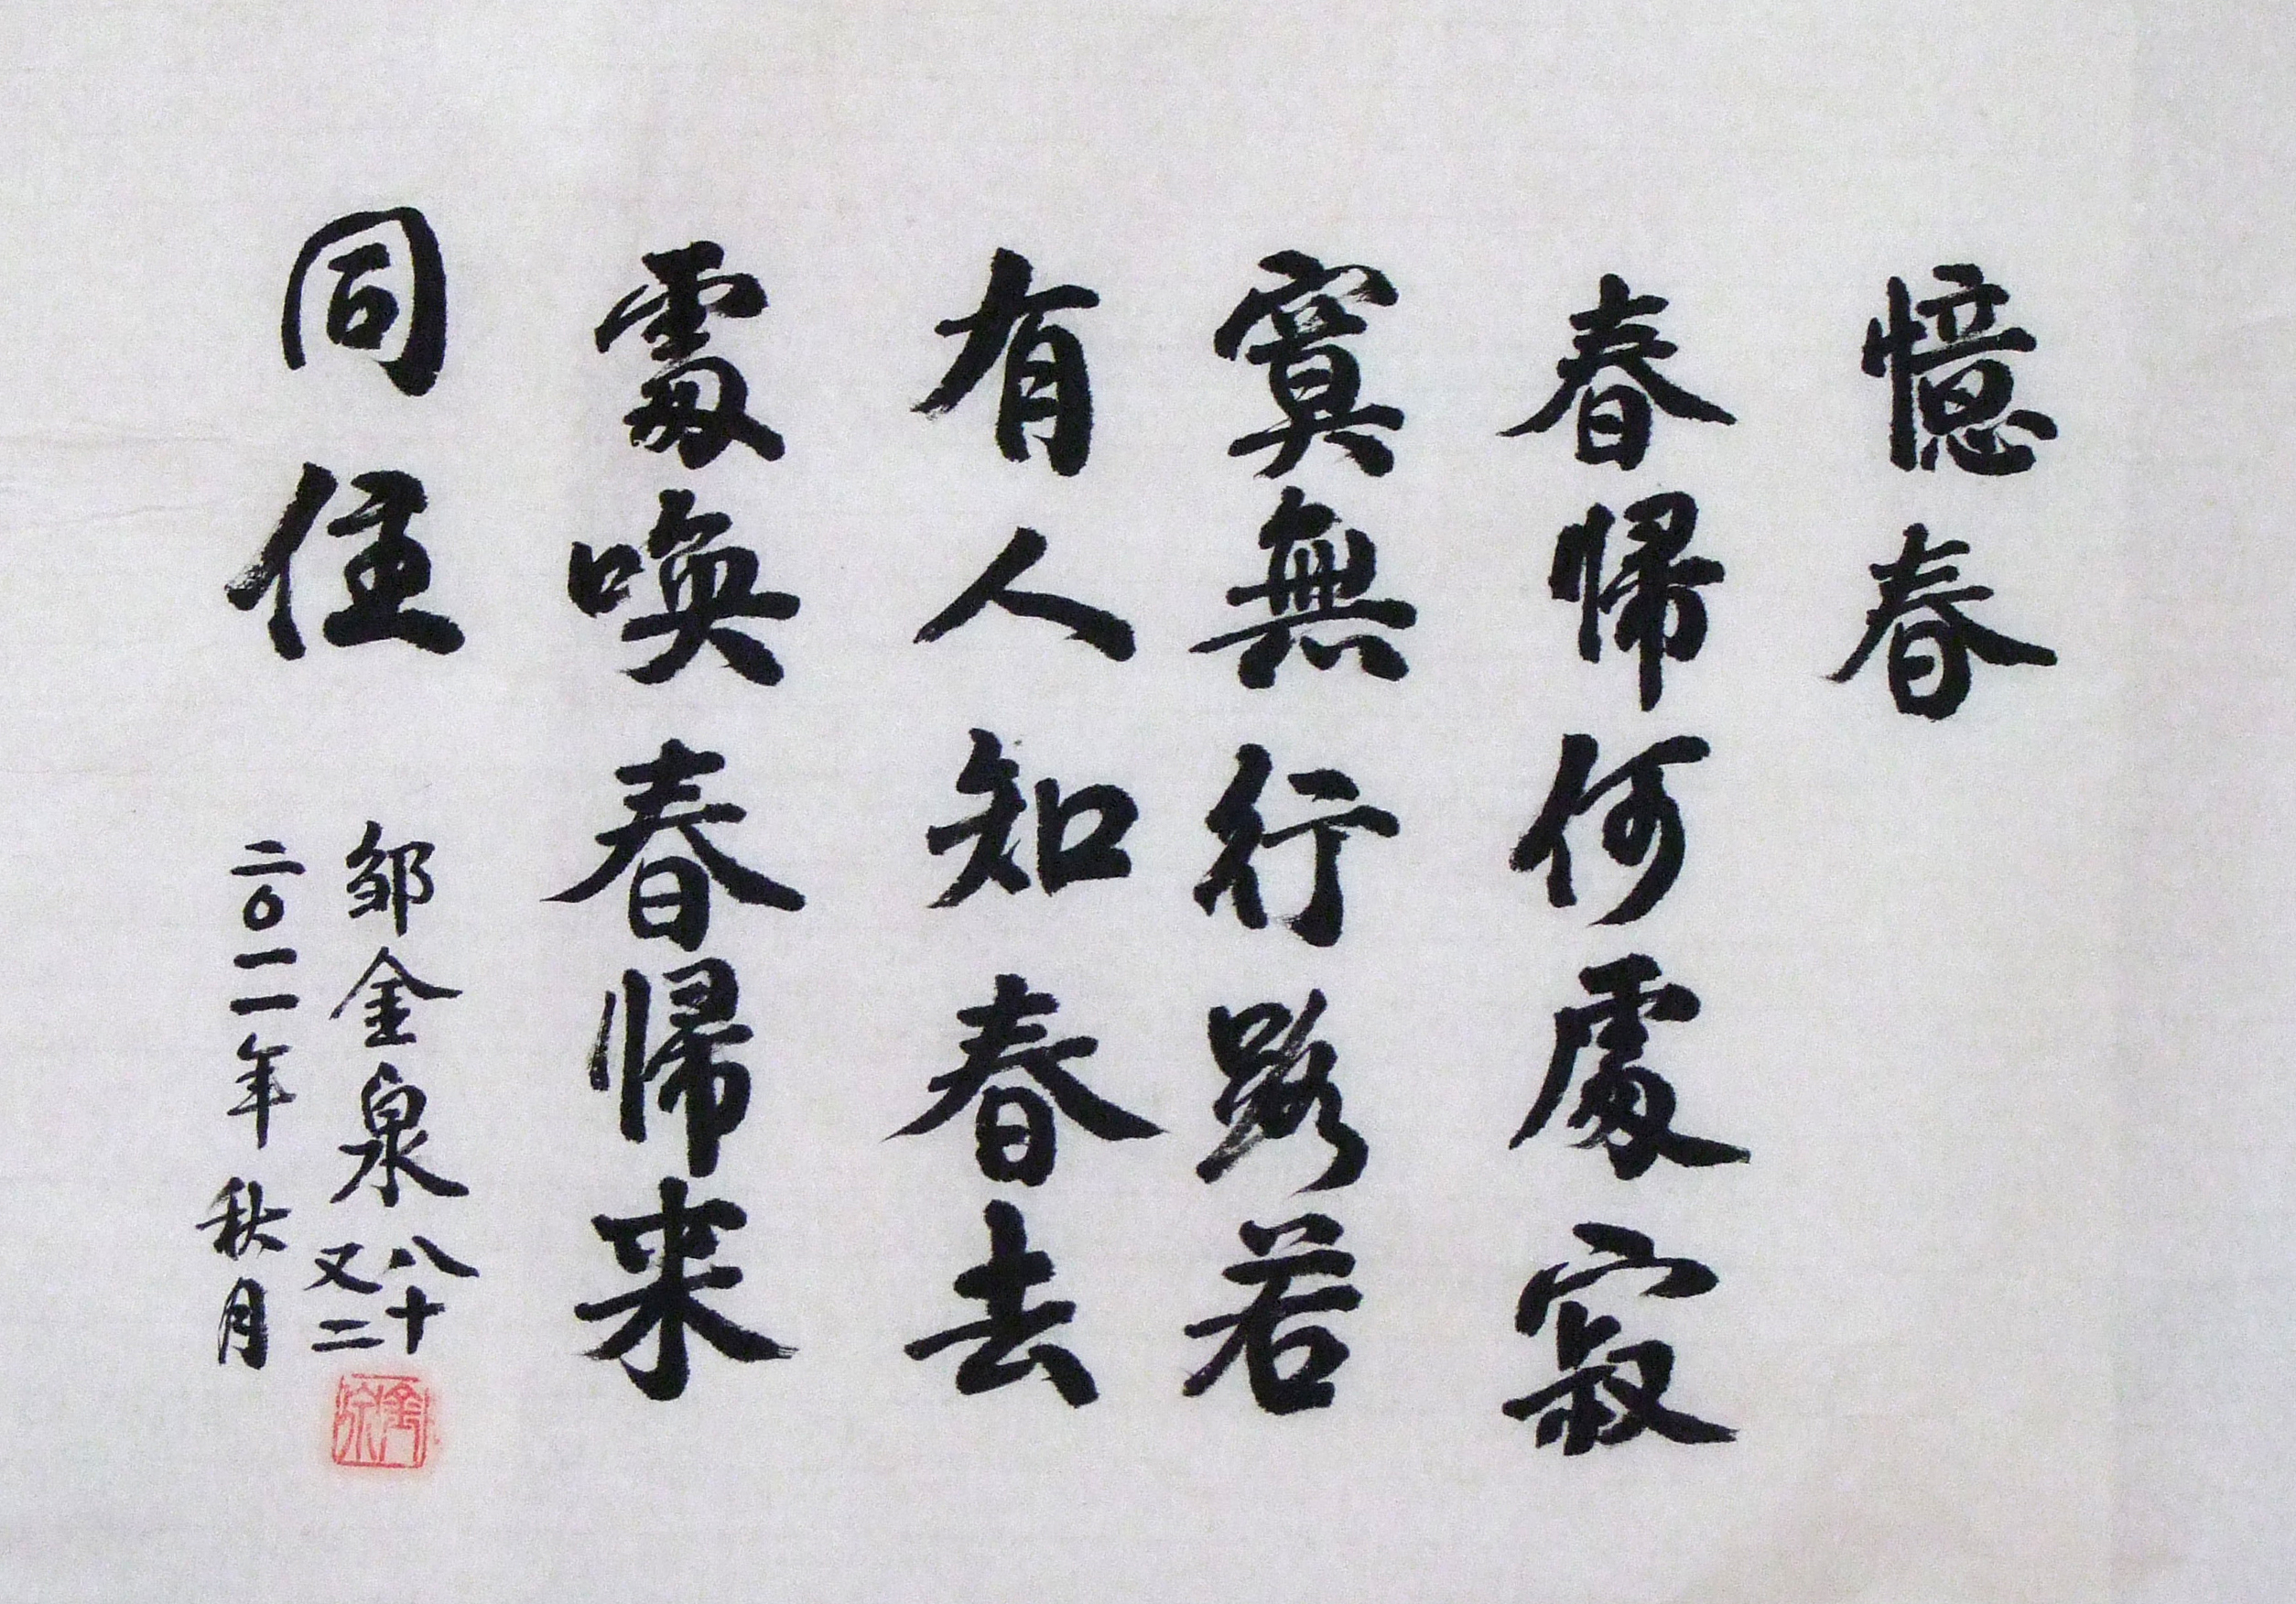 憶春
春帰何處寂
寞無行路若
有人知春去
處喚春帰来
同住
邹金泉八十又二
二〇一一年秋月